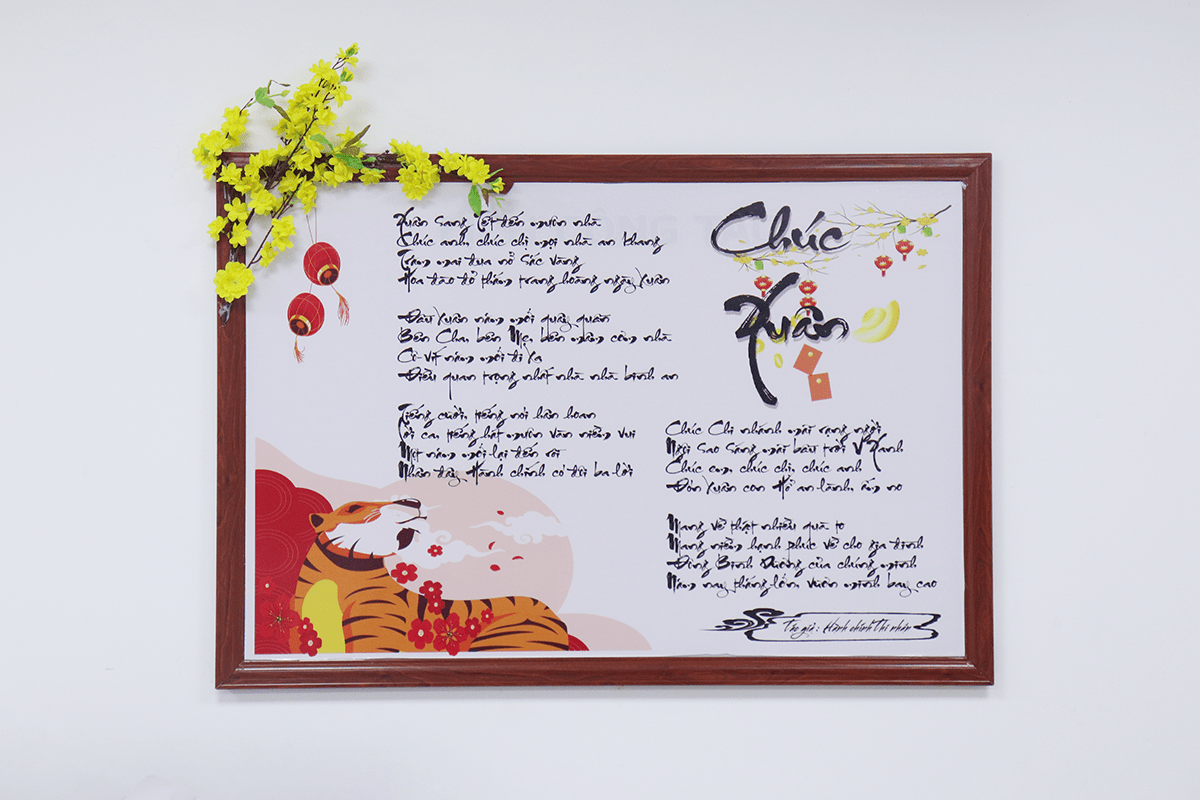 Chúc
Xuân
Xuân sang Tết đến muôn nhà
Chúc anh, chúc chị mọi nhà an khang
Trăm mai đua nở sắc vàng
Hoa đào đỏ thắm trang hoàng ngày Xuân
Đầu Xuân năm mới quây quần
Bên Cha, bên Mẹ, bên mâm cơm nhà
Cô-vít năm mới đi xa
Điều quan trọng nhất nhà nhà bình an
Tiếng cười, tiếng nói hân hoan
Lời ca, tiếng hát muôn vàn niềm vui
Một năm mới lại đến rồi
Nhân đây, Hành chính có đôi ba lời
Chúc Chi nhánh mãi rạng ngời
Ngôi Sao Sáng mãi bầu trời V Xanh
Chúc em, chúc chị, chúc anh
Đón Xuân con Hổ an lành, ấm no
Mang về thật nhiều quà to
Mang niềm hạnh phúc về cho gia đình
Đông Bình Dương của chúng mình
Năm nay thắng lớn, vươn mình bay cao
Tác giả: Hành chính Thi nhân